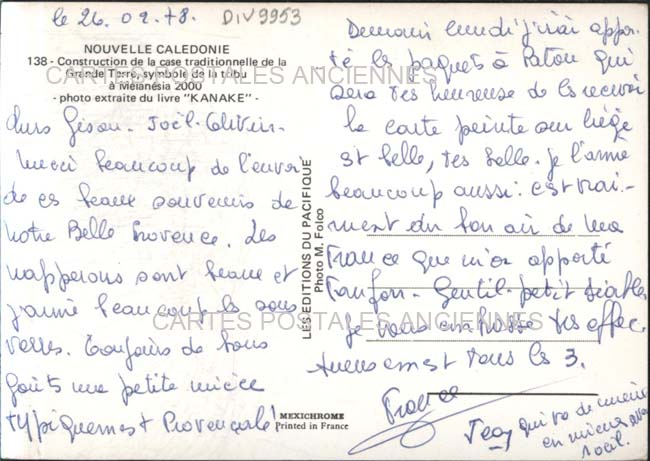 le 26.02.78. DIV9953
NOUVELLE CALEDONIE
138 - Construction de la case traditionnelle de la
Grande Terre, symbole de la tribu
à Mélanésia 2000
- photo extraite du livre "KANAKE" -
CARTES POSTALES ANCIENNES
Joël. Olivier.
Merci beaucoup de l'envoi
de ces beaux souvenirs de
notre Belle Provence. Les
napperons sont beaux et
j'aime beaucoup les sous
verres. Toujours de bons
goûts ma petite nièce
typiquement Provençale!
LES EDITIONS DU PACIFIQUE
Photo M. Folco
MEXICHROME
Printed in France
Demain lundi j'irai appor-
té les paquets à Paton qui
sera très heureuse de les recevoir
la carte peinte sur liège
est belle, très belle. je l'aime
beaucoup aussi: c'est vrai-
ment du bon air de ma
France que m'on apporté
Gentil petit diable
CARTES POSTALES ANCIENNES
Je vous embrasse très affec
tueusement tous les 3.
France
Jean qui va de mieux
en mieux